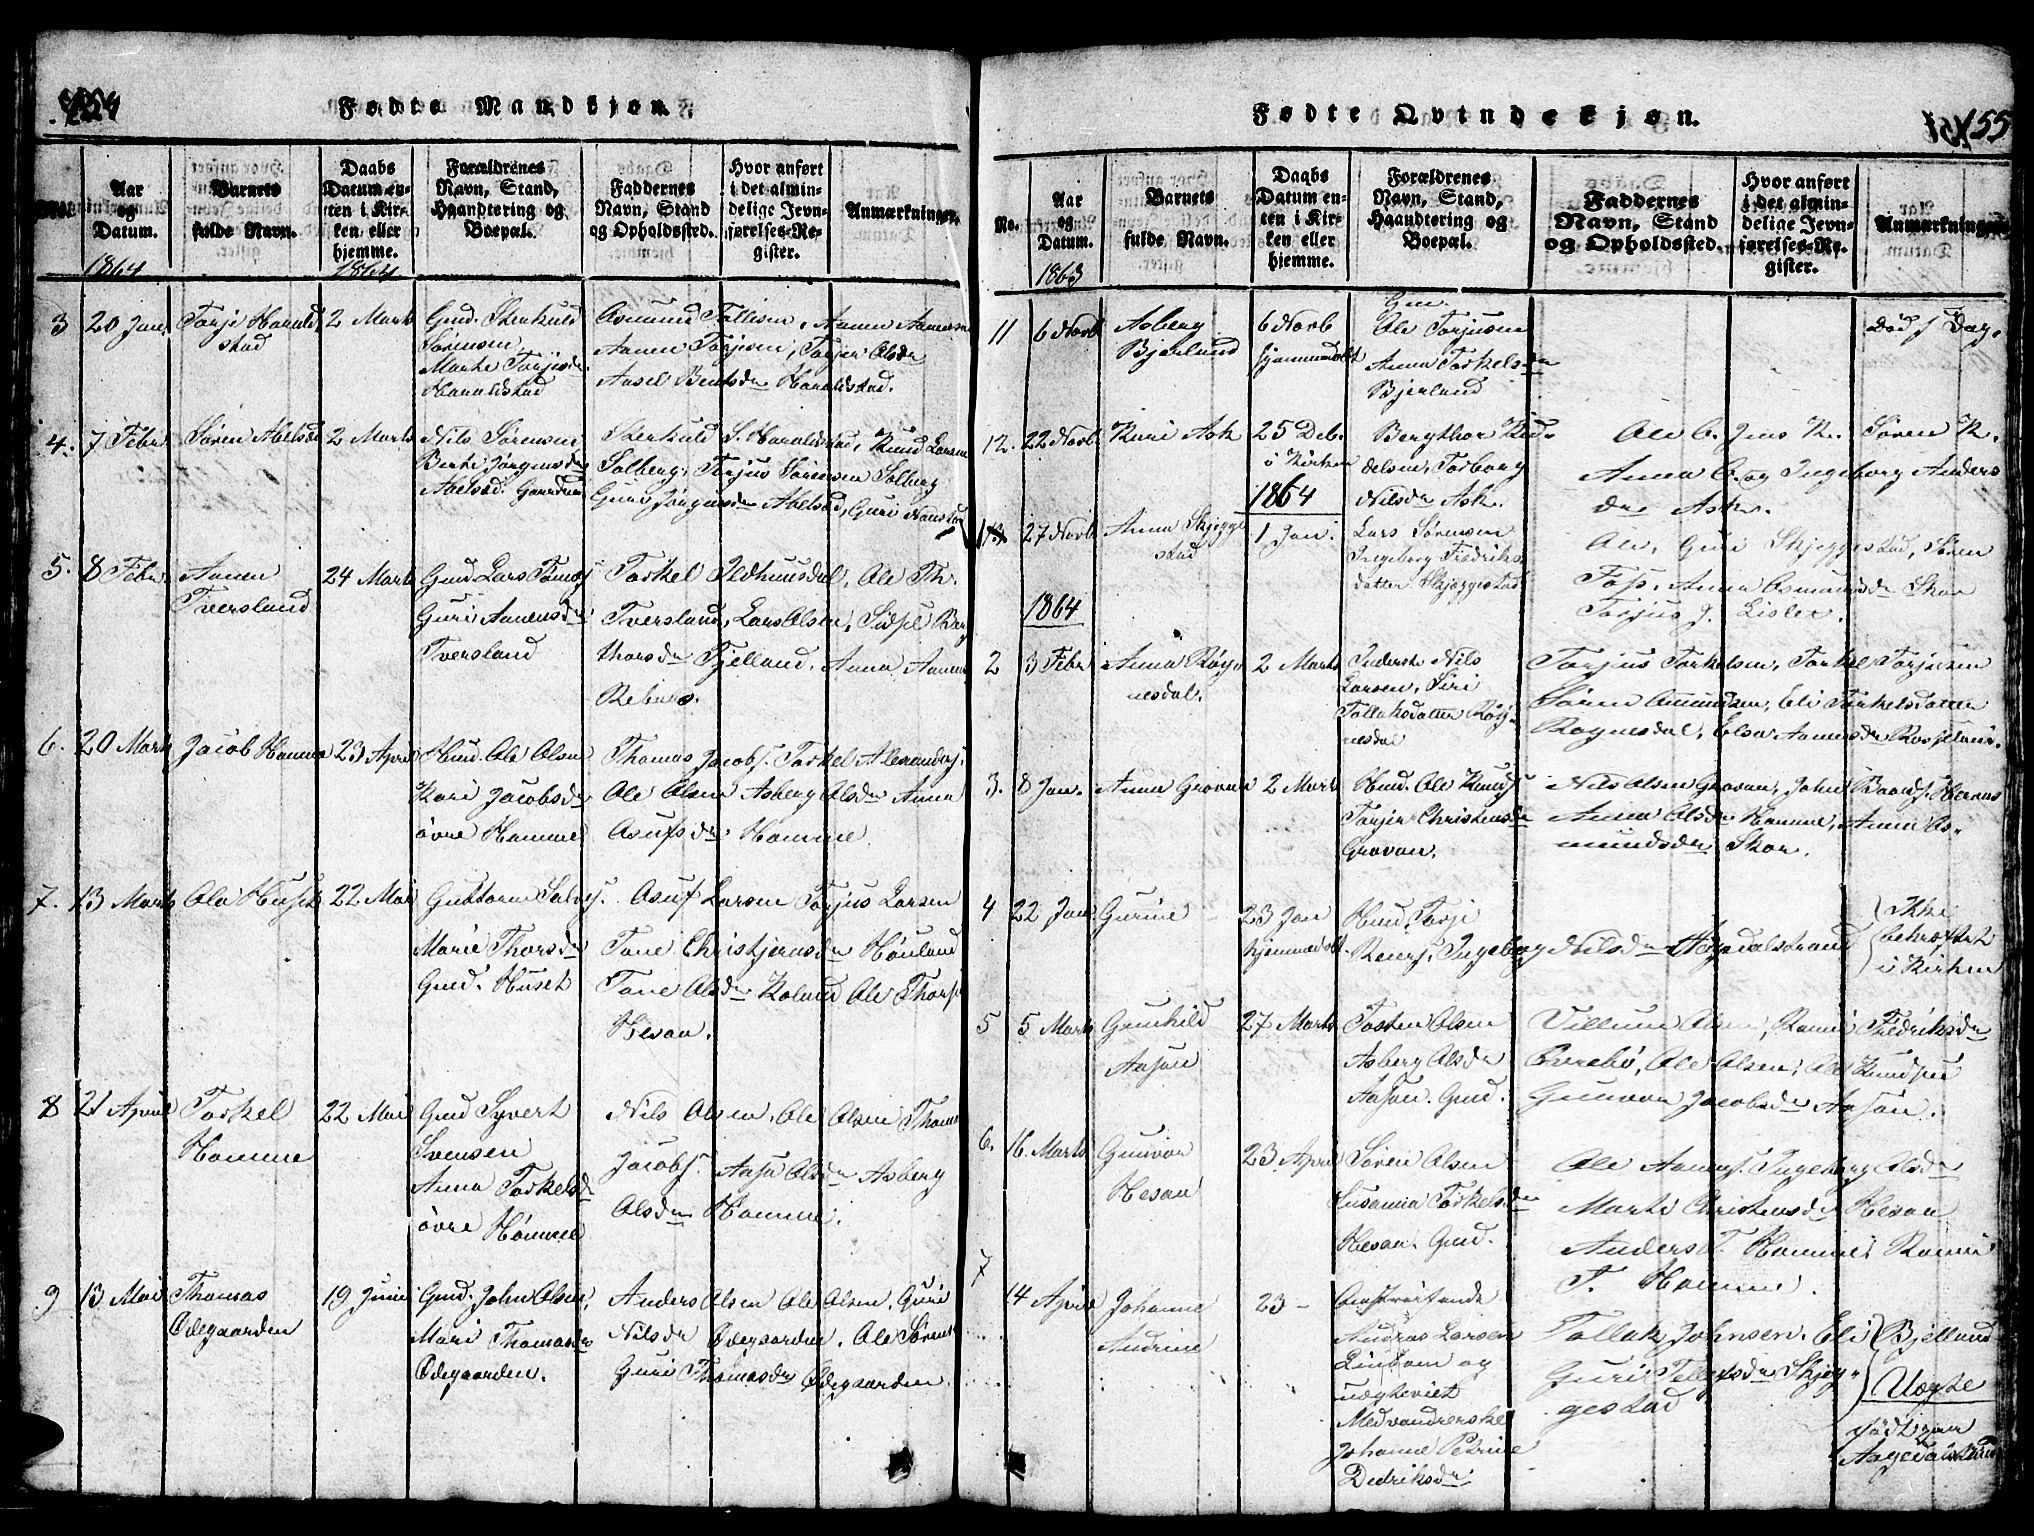 154
Fødte Mandkjøn.
No.
Aar og Datum.
Barnets fulde Navn.
Daabs Datum enten i Kirken eller hjemme.
Forældrenes Navn, Stand, Haandtering og Boepæl.
Faddernes Navn, Stand og Opholdssted.
Hvor anført i det almindelige Jevnførelses-Register.
Anmærkninger.
1864
1864
3
20 Jan.
Torje Haraldstad
2 Marts
Gmd. Sterkuld
Sørensen
Marte Torjusdr
Haraldstad
Osmund Tallesen, Aanen Aanensen
Aanen Torjesen, Torjer Olsdr
Aasel Bentsdr Haraldstad.
4.
7 Febr
Søren Abelsæd
2 Marts
Nils Sørensen
Berte Jørgensdr
Abelsæd. Gaardm.
Sterkuld S. Haraldstad, Knud Larsen
Solberg, Torjus Sørensen Solberg
Guri Jørgensdr Abelsæd, Guri Naustad
5.
8 Febr.
Aanen
Tversland
24 Marts
Gmd Lars Tomesf
Guri Aanensdr
Tversland
Torkel Ildhuusdal, Ole Th.
Tversland, Lars Olsen, Sidsel Berg
thorsdr Fjelland, Anna Aanens
6.
20 Marts
Jacob Homme
23 April
Huud. Ole Olsen
Kari Jacobsdr
øvre Homme
Thomas Jacobs. Torkel Alexanders.
Ole Olsen Asberg Olsdr Anna
Asufsdr Homme.
7.
13 Marts
Ole Huset
22 Mai
Guttorm Salves.
Marie Thorsdr
Gmd. Huset
Asuf Larsen Torjus Larsen
Tone Christjernsdr Høiland
Tone Olsdr Roland Ole Thors
Hesan.
8
21 April
Torkel
Homme
22 Mai
Gmd Syvert
Svensen
Anna Torkelsdr
øvre Homme
Nils Olsen, Ole Olsen Thomas
Jacobs. Aasa Olsdr Asberg
Olsdr Homme.
9
13 Mai
Thomas
Ødegaarden
19 Junie
Gmd. John Olsen,
Mari Thomasdr
Ødegaarden.
Anders Olsen Ole Olsen, Guri
Nilsdr Ødegaarden. Ole Sørens
Guri Thomasdr Ødegaarden.
155
Fødte Qvindekjøn.
No.
Aar og Datum.
Barnets fulde Navn.
Daabs Datum enten i Kirken eller hjemme.
Forældrenes Navn, Stand, Haandtering og Boepæl.
Faddernes Navn, Stand og Opholdssted.
Hvor anført i det almindelige Jevnførelses-Register.
Anmærkninger.
1863
11
6 Novb
Asberg
Bjerlund
6 Novb
hjemmedøbt
Gm.
Ole Torjusen
Anna Torkelsdr
Bjerland
Død 7 Dag.
12.
22 Novb.
Kari Ask
25 Deb.
i Kirken
Bergthor Knudelsen, Torborg
Nilsdr Ask.
Ole C. Jens K. Søren K.
Anna C. og Ingeborg Anders
dr Ask.
1864
13
27 Novb
Anna Skjeggestad
1 Jan.
Lars Sørensen
Ingeborg Fredriks
datter Skjeggestad
Ole, Guri Skjeggestad, Søren
Tos. Anna Osmundsdr Skar
Torjus J. Lislev.
1864
2
3 Febr
Anna Røynesdal.
2 Marts
Inderste Nils
Larsen, Siri
Tallaksdatter Røynesdal
Torjus Torkelsen, Torkel Torjusen
Søren Amundsen, Eli Torkelsdatter
Røynesdal, Elsa Aanensdr
3.
8 Jan.
Anna Grovan
2 Marts
Huud. Ole Knuds.
Torjer Christensdr
Grovan.
Nils Olsen Grovan, John Baards.
Anna Olsdr Homme, Anna Osmundsdr Skar.
4
22 Jan
Gurine
23 Jan
hjemmedøbt.
Huud. Torje
Reiers. Ingeborg Nilsdr
Ikke
bekræftet
i Kirken
5
5 Marts
Gunhild
Aasan
27 Marts
Tosten Olsen
Asberg Olsdr
Aasan. Gmd.
Villum Olsen, Ranni Fredriksdr
Everebø, Ole Olsen, Ole Knudsen
Gunvor Jacobsdr Aasan.
6.
16. Marts
Gunvor
Hesan
23 April
Søren Olsen
Susanna Torkelsdr
Hesan. Gmd.
Ole Aanens. Ingeborg Olsdr
Marte Christensdr Hesan
Anders T. Homme, Ranni
T. Homme.
7
14 April
Johanne
Andrine
23 -
Omstreifende
Andras Larsen
Lindom og
uægteviet
Medvandrerske
Johanne Petrine
Dedriksdr
Tallak Johnsen. Eli Bjelland
Guri Tellefsdr Skjeggestad
Uægte
født paa